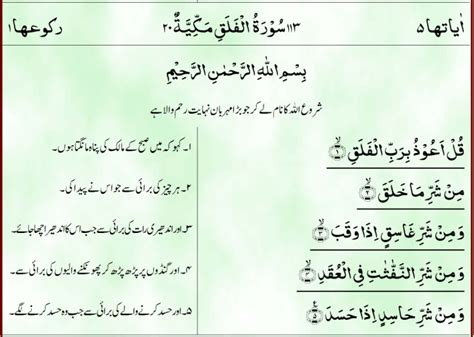 اٰیاتها ۵ ۱۱۳ سُوْرَةُ الْفَلَقِ مَكِّيَّةٌ ۲۰ رکوعها ۱
بِسْمِ اللّٰهِ الرَّحْمٰنِ الرَّحِيْمِ
شروع اللہ کا نام لے کر جو بڑا مہربان نہایت رحم والا ہے
قُلْ اَعُوْذُ بِرَبِّ الْفَلَقِ ۱ ۱۔ کہو کہ میں صبح کے مالک کی پناہ مانگتا ہوں۔
مِنْ شَرِّ مَا خَلَقَ ۲ ۲۔ ہر چیز کی برائی سے جو اس نے پیدا کی۔
وَمِنْ شَرِّ غَاسِقٍ اِذَا وَقَبَ ۳ ۳۔ اور اندھیری رات کی برائی سے جب اس کا اندھیرا چھا جائے۔
وَمِنْ شَرِّ النَّفّٰثٰتِ فِى الْعُقَدِ ۴۔ اور گنڈوں پر پڑھ پڑھ کر پھونکنے والیوں کی برائی سے۔
وَمِنْ شَرِّ حَاسِدٍ اِذَا حَسَدَ ۵ ۵۔ اور حسد کرنے والے کی برائی سے جب وہ حسد کرنے لگے۔